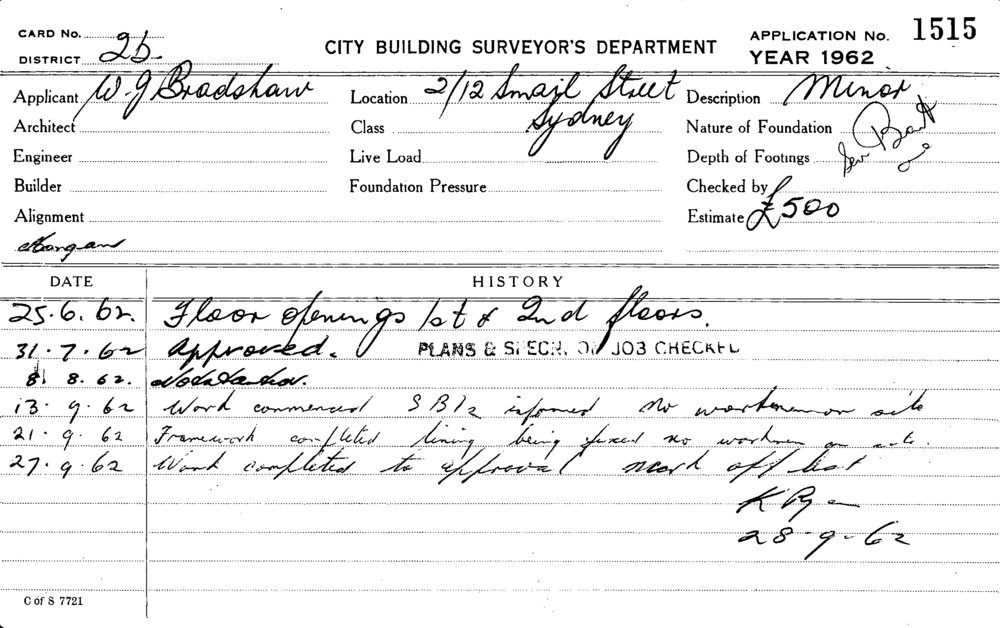 CARD No. 2b. CITY BUILDING SURVEYOR'S DEPARTMENT APPLICATION No. 1515
DISTRICT YEAR 1962
Applicant W. J Bradshaw Location 2/12 Smail Street Description Minor
Architect Class Sydney Nature of Foundation
Engineer Live Load Depth of Footings
Builder Foundation Pressure Checked by
Alignment Estimate £500
Morgan
DATE HISTORY
25.6.62. Floor openings 1st & 2nd floors.
31.7.62 Approved. PLANS & SPECN. ON JOB CHECKED
8.8.62.
13.9.62 Work commenced informed No workmen on site
21.9.62 Framework completed lining being fixed no workmen on site.
27.9.62 Work completed to approval mark off list
28-9-62
C of S 7721